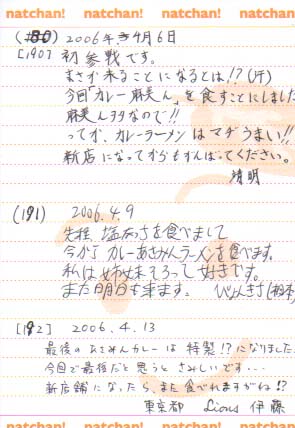 natchan! natchan! natchan! natchan!
2006年4月6日
[190] 初参戦です。
まさか来ることになるとは!?(汗)
今回「カレー麻美ん」を食すことにしました
麻美んヲタなので!!
ってか、カレーラーメンはマヂうまい!!
新店になってからもがんばってください。
晴明
(191) 2006.4.9
先程、塩あっさを食べまして
今からカレーあさみんラーメンを食べます。
私は姉妹そろって好きです。
また明日も来ます。
[192] 2006.4.13
最後のあさみんカレーは特製!?になりました
今回で最後だと思うとさみしいです・・・
新店舗になったら、また食べれますかね!?
東京都 Lions 伊藤
natchan! natchan! natchan! natchan!